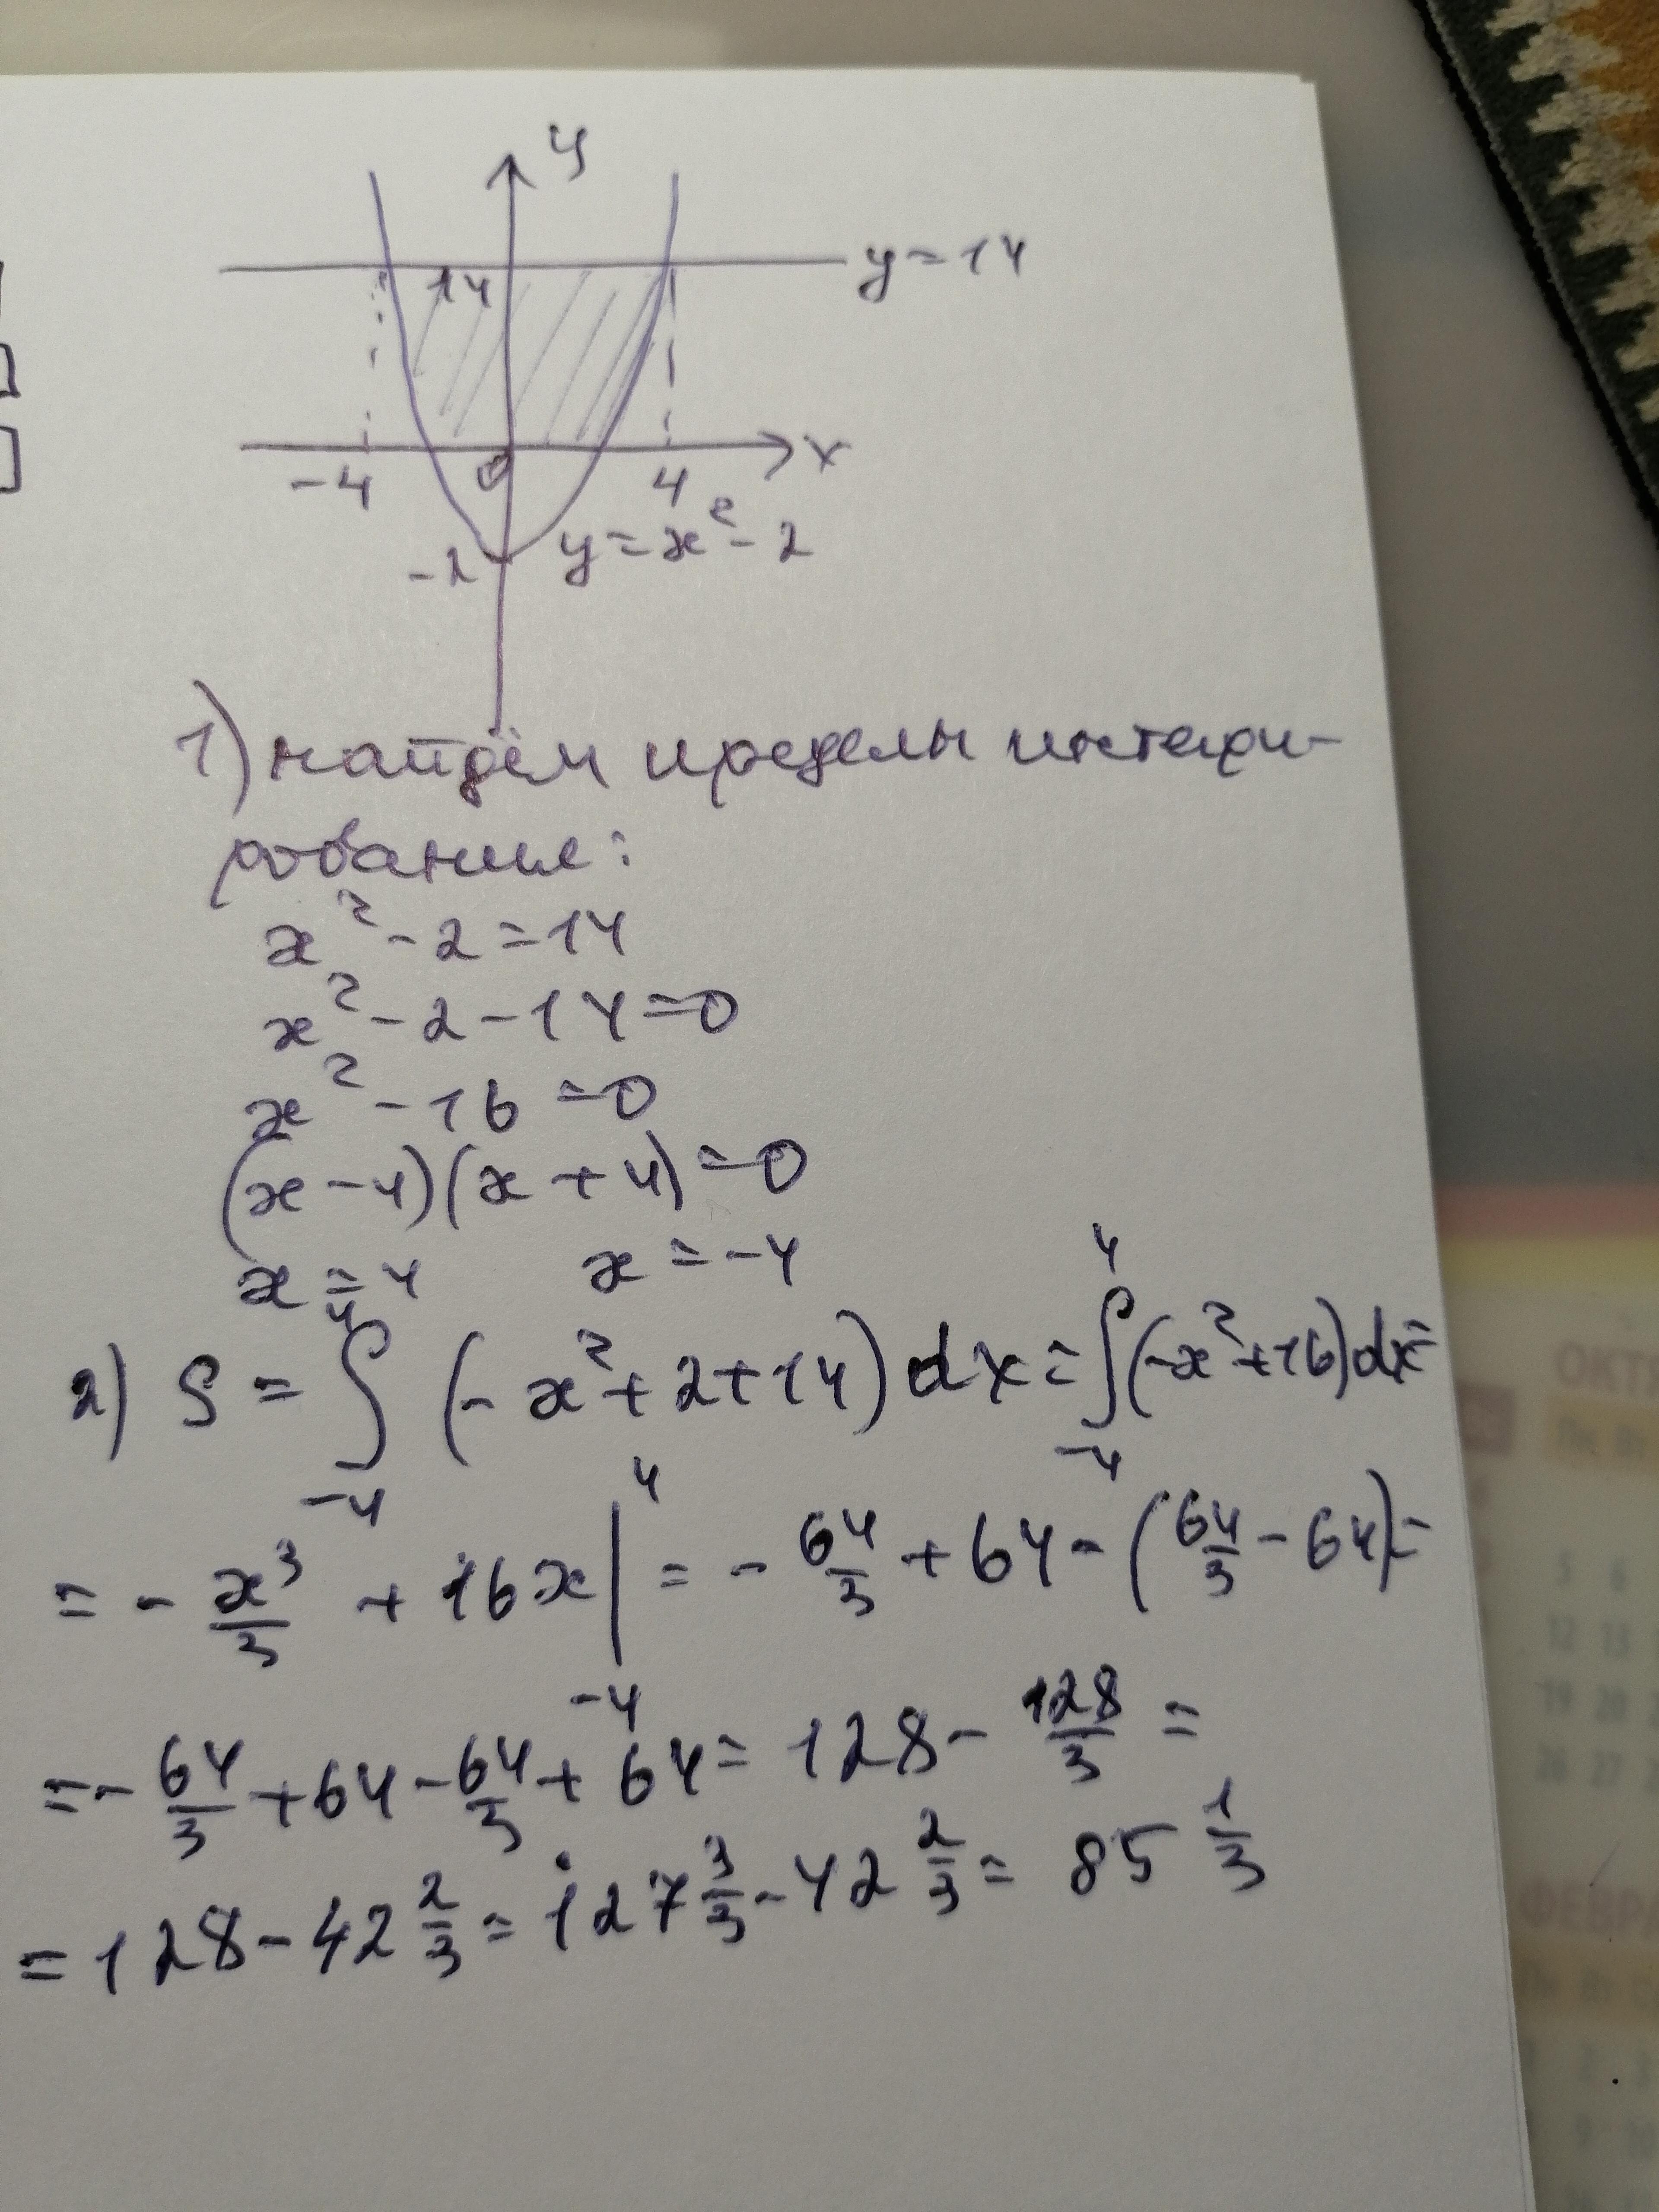 y
y = 14
14
-4 0 4 x
-2 y = x² - 2
1) найдём пределы интегри-
рование:
x² - 2 = 14
x² - 2 - 14 = 0
x² - 16 = 0
(x - 4)(x + 4) = 0
x = 4 x = -4
2) S = ∫₋₄⁴ (- x² + 2 + 14) dx = ∫₋₄⁴ (-x² + 16) dx =
= - x³/3 + 16x |₋₄⁴ = - 64/3 + 64 - (64/3 - 64) =
= - 64/3 + 64 - 64/3 + 64 = 128 - 128/3 =
= 128 - 42 2/3 = 127 3/3 - 42 2/3 = 85 1/3
5 6
12 13
19 20
26 27